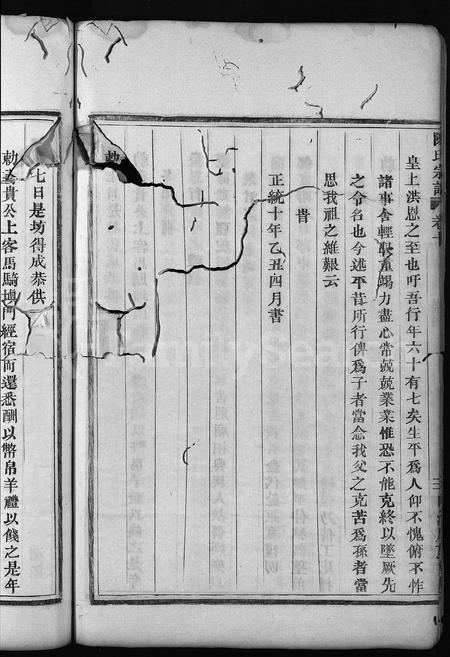 陳氏宗譜 卷十
皇上洪恩之至也吁吾行年六十有七矣生平爲人仰不愧俯不怍
諸事舍輕取重竭力盡心常兢兢業業惟恐不能克終以墜厥先
之令名也今述平昔所行俾爲子者當念我父之克苦爲孫者當
思我祖之維艱云
旹
正統十年乙丑四月書
勅
七日是坊得成恭供
勅 貴公上客馬騎墉門經宿而還悉酬以幣帛羊禮以餞之是年